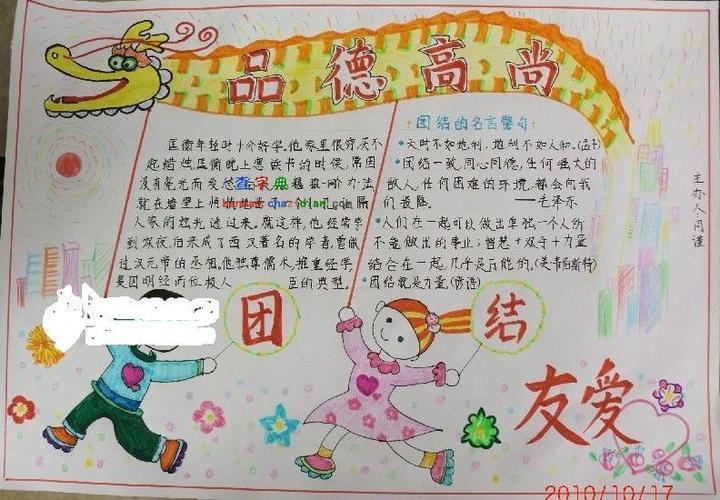 品德高尚
匡衡年轻时十分好学。他家里很穷,买不
起蜡烛,匡衡晚上想读书的时候,常因
没有亮光而发愁
办法
就在墙上
人家的烛光透过来。就这样,他经常学
到深夜,后来成了西汉著名的学者,曾做
过汉元帝的丞相。他独尊儒术,推重经学,
是因明经而位极人臣的典型。
团结的名言警句
•天时不如地利,地利不如人和。(孟子)
•团结一致,同心同德,任何强大的
敌人,任何困难的环境,都会向我
们投降。——毛泽东
•人们在一起可以做出单独一个人所
不能做出的事业;智慧+双手+力量
结合在一起,几乎是万能的。(美韦伯斯特)
•团结就是力量。(谚语)
主办人:闫谨
团
结
友爱
查字典
2010/10/17